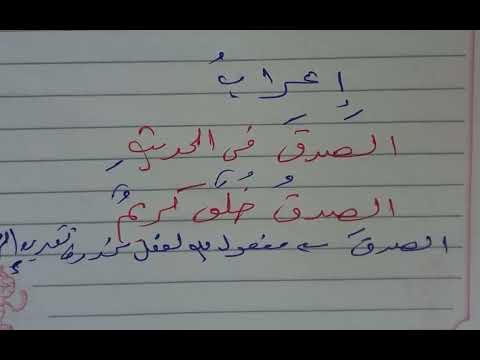 إعرابُ
الصدقَ في الحديثِ
الصدقُ خُلُقٌ كريمٌ
الصدقَ ← مفعول به لفعل محذوف تقديره